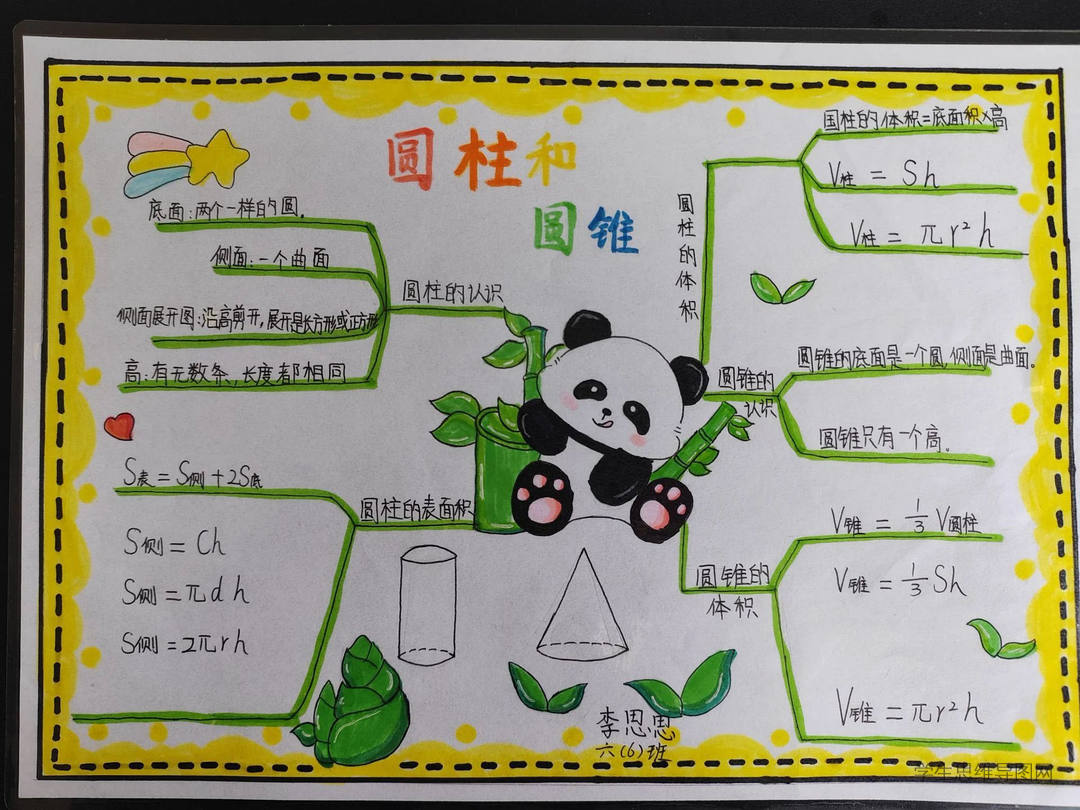 圆柱和
圆锥
底面:两个一样的圆。
侧面:一个曲面
侧面展开图:沿高剪开,展开是长方形或正方形
高:有无数条,长度都相同
圆柱的认识
S表=S侧+2S底
S侧=Ch
S侧=πdh
S侧=2πrh
圆柱的表面积
圆柱的体积
圆柱的体积=底面积×高
V柱=Sh
V柱=πr²h
圆锥的
认识
圆锥的底面是一个圆,侧面是曲面。
圆锥只有一个高。
圆锥的
体积
V锥=1/3V圆柱
V锥=1/3Sh
V锥=πr²h
李思思
六(6)班
学生思维导图网